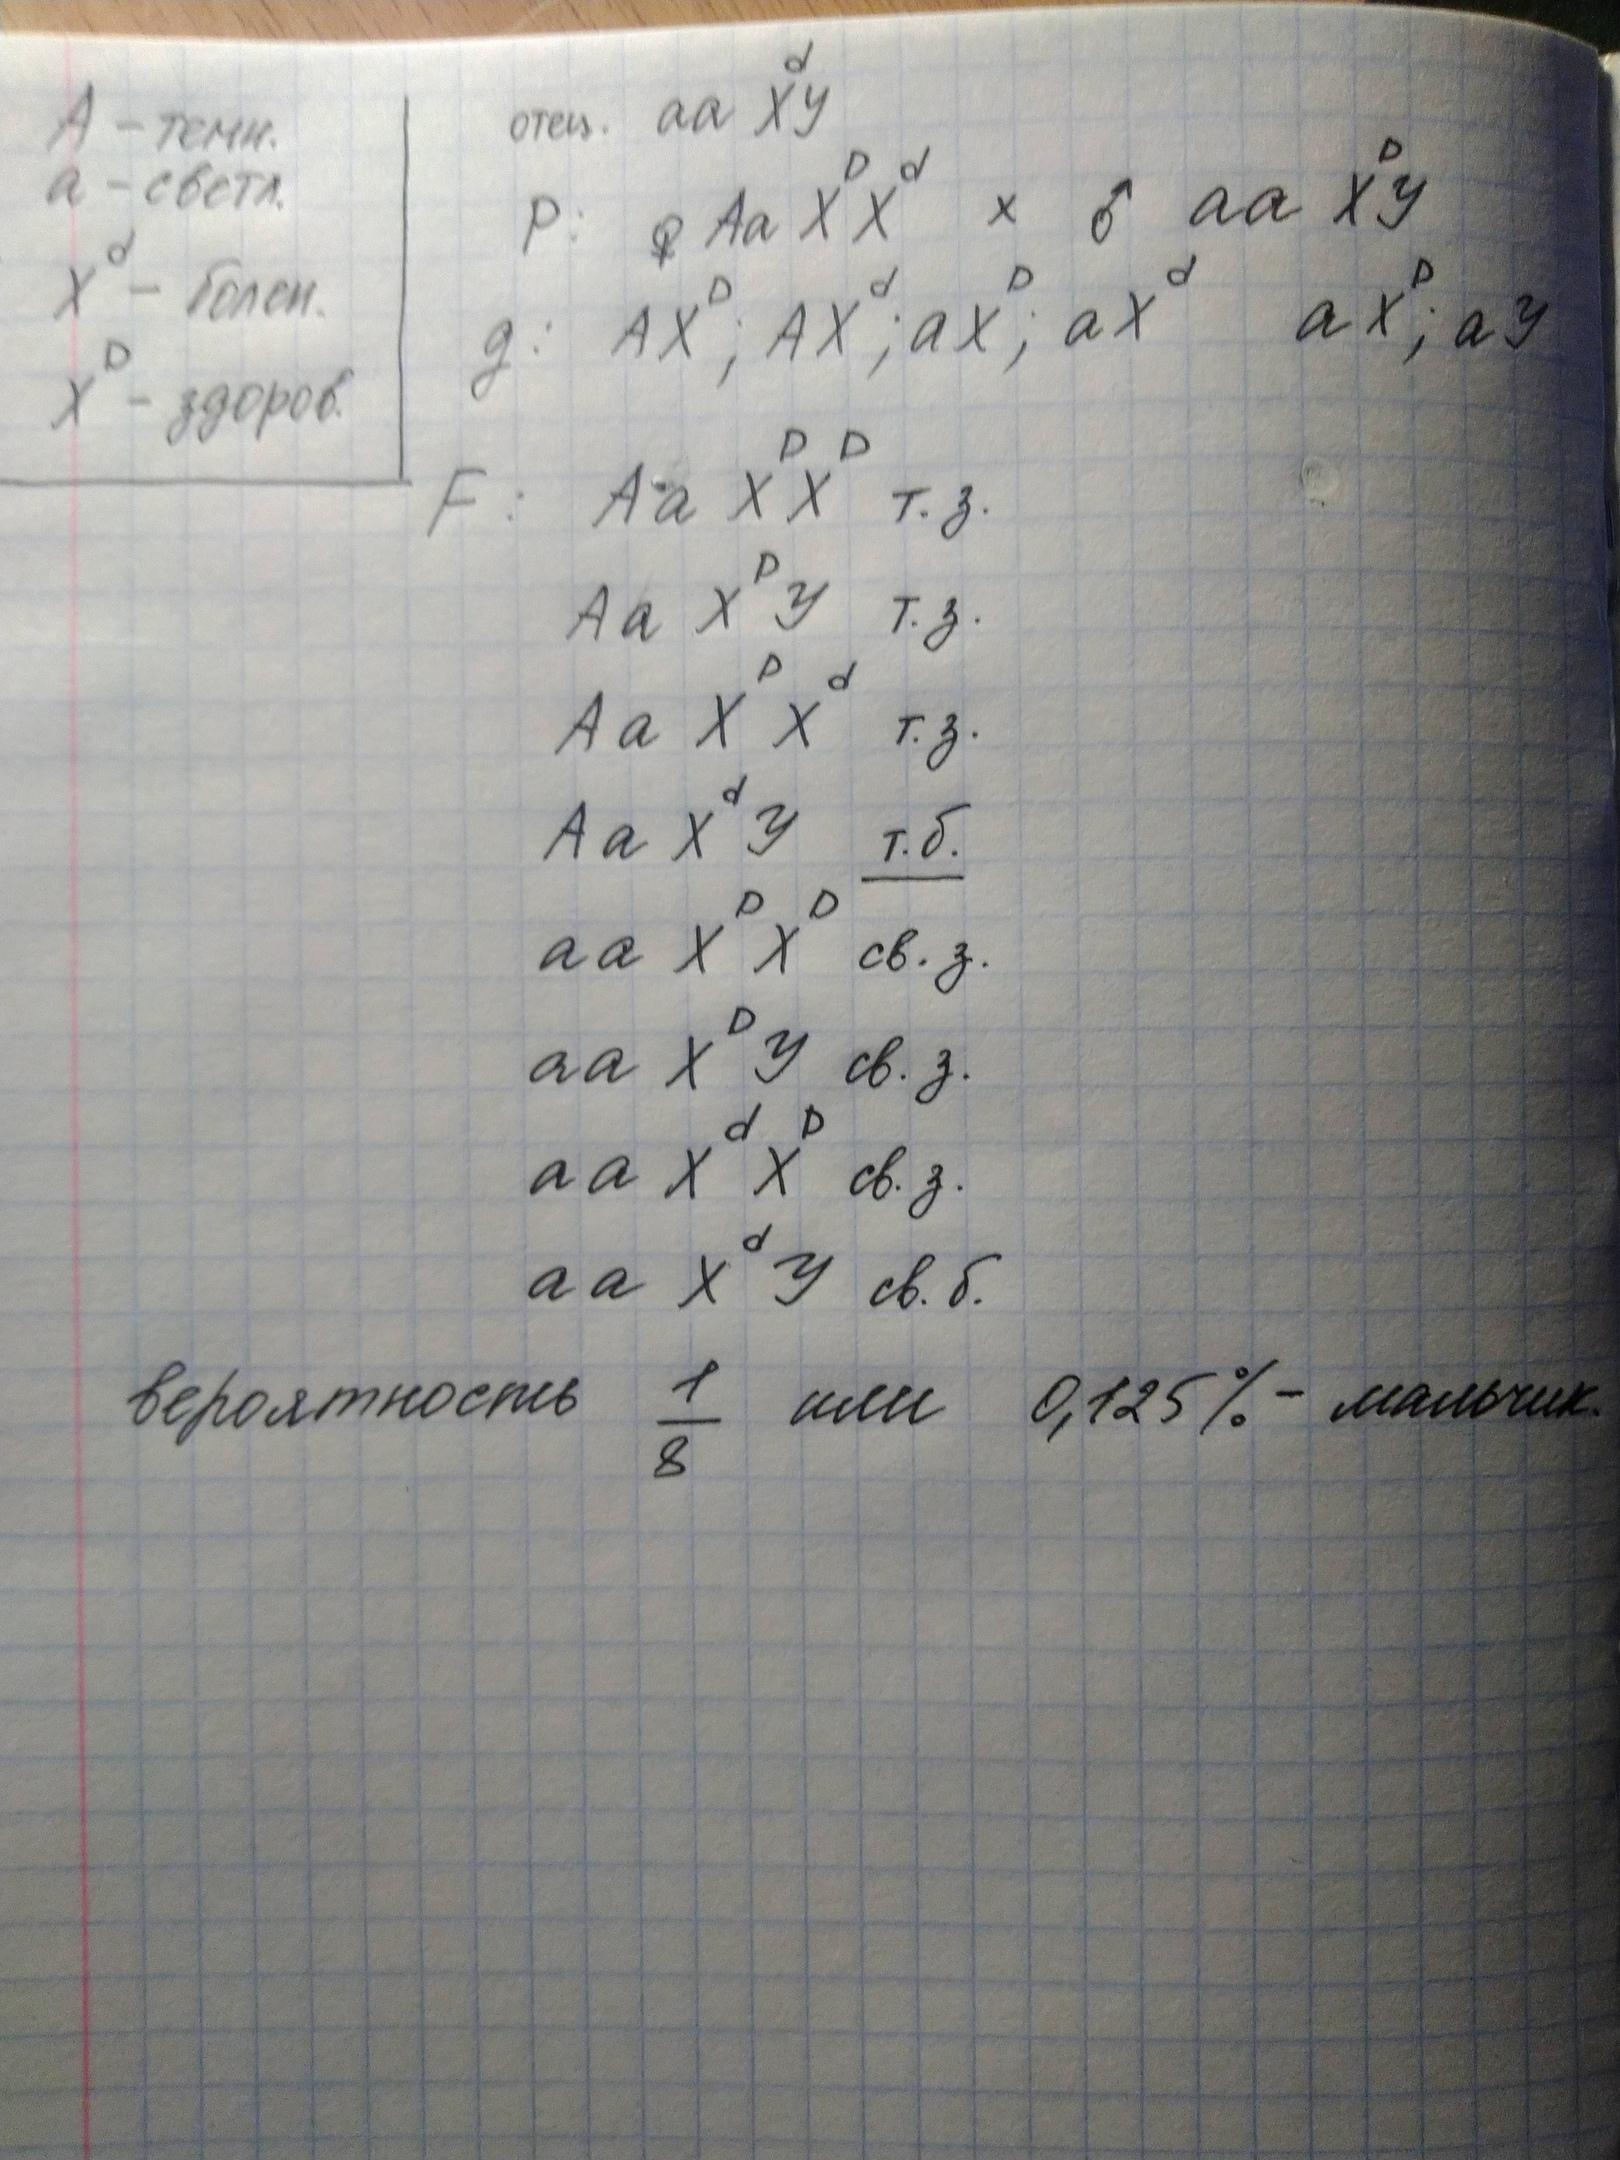 A - темн.
а - светл.
X^d - болен.
X^D - здоров.
отец. аа X^dУ
P: ♀ Aa X^D X^d × ♂ аа X^DУ
g: AX^D; AX^d; aX^D; aX^d аX^D; аУ
F: Aa X^D X^D т.з.
Aa X^D У т.з.
Aa X^D X^d т.з.
Aa X^d У т.б.
аа X^D X^D св.з.
аа X^D У св.з.
аа X^d X^D св.з.
аа X^d У св.б.
вероятность 1/8 или 0,125% - мальчик.